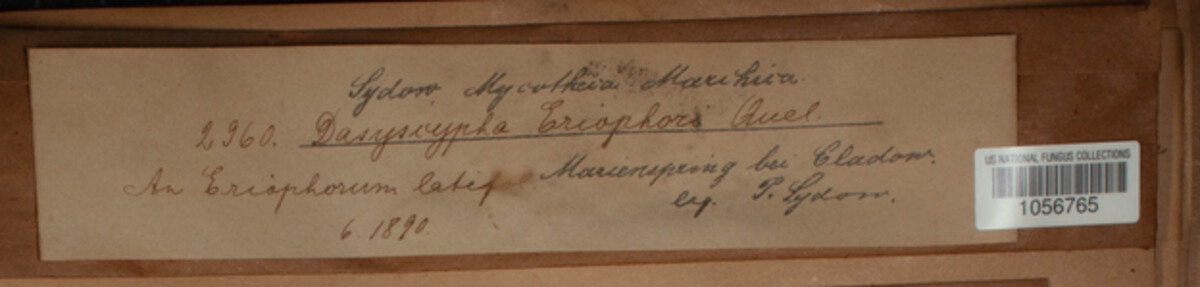 Sydow, Mycotheca Marchica.
2960. Dasyscypha Eriophori Quel.
An Eriophorum latif
Marienspring bei Cladow.
6. 1890.
leg. P. Sydow.
US NATIONAL FUNGUS COLLECTIONS
1056765